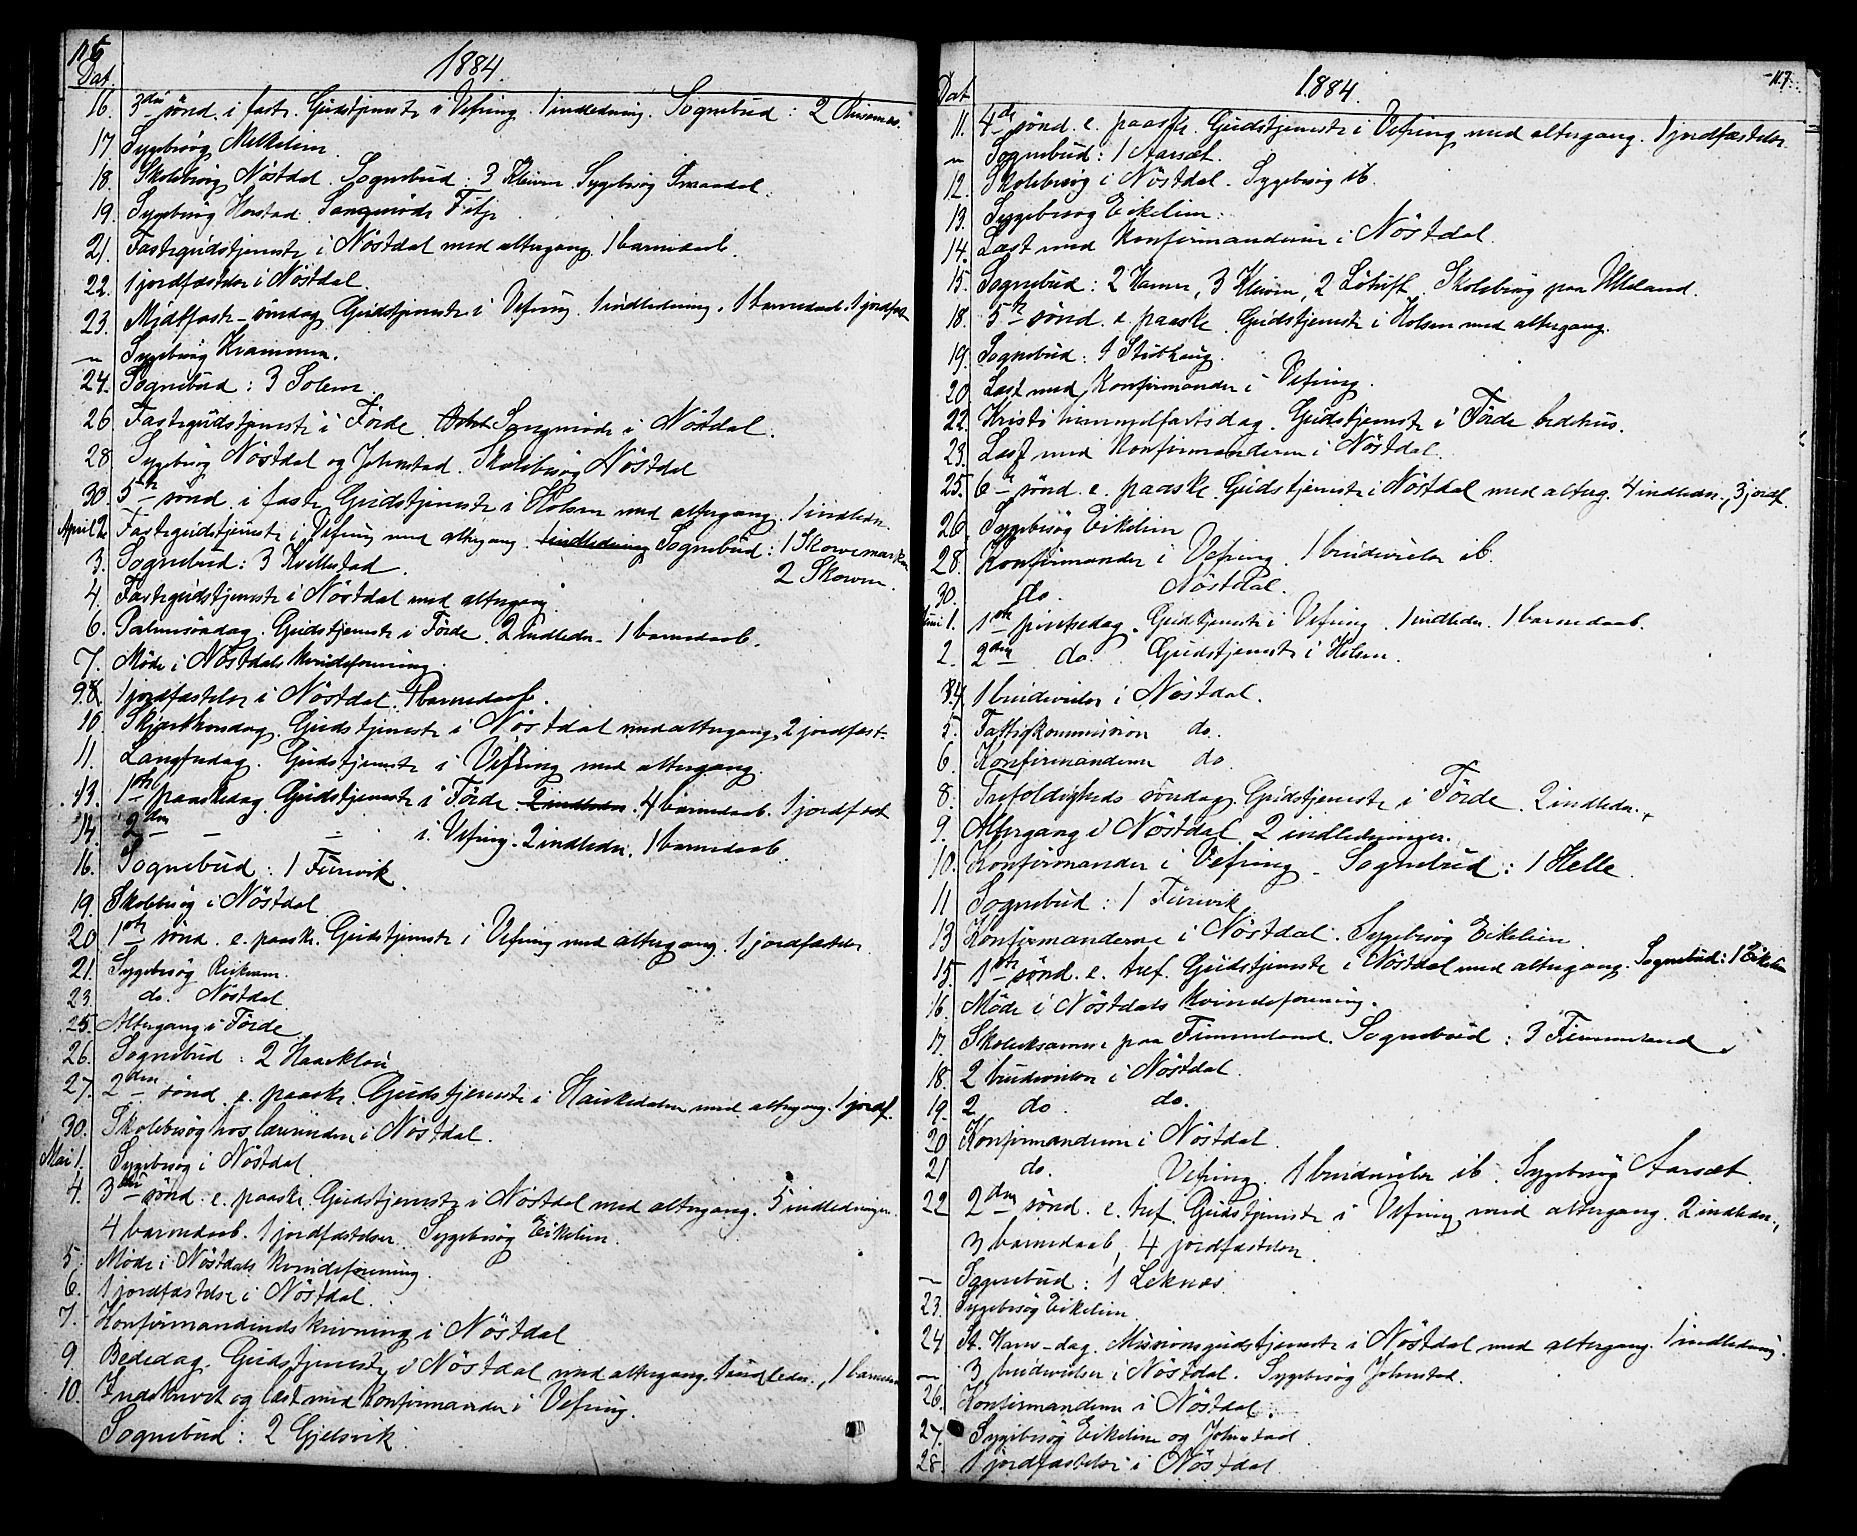 116
1884.
Dat.
16. 3die sönd. i faste. Gudstjeneste i Vefring. 1 indledning. Sognebud: 2
17 Sygebesög
18. Skolebesög Nöstdal. Sognebud: 3 Kleiven. Sygebesög
19. Sygebesög Horstad. Sangmöde Fitje
21. Fastegudstjeneste i Nöstdal med altergang. 1 barnedaab.
22. 1 jordfæstelse i Nöstdal.
23. Midtfaste-söndag. Gudstjeneste i Vefring. 1 indledning. 1 barnedaab. 1 jordfæst
" Sygebesög Hrammen.
24. Sognebud: 3 Solem
26 Fastegudstjeneste i Förde. Sangmöde i Nöstdal.
28 Sygebesög Nöstdal og Johnstad. Skolebesög Nöstdal
30. 5te sönd. i faste. Gudstjeneste i Holsen med altergang. 1 indledn.
April 2. Fastegudstjeneste i Vefring med altergang. 1 indledning Sognebud: 1 Skovemarken
2 Skoven.
3. Sognebud: 3 Kvellestad.
4. Fastegudstjeneste i Nöstdal med altergang.
6. Palmesöndag. Gudstjeneste i Förde. 2 indledn. 1 barnedaab.
7. Möde i Nöstdals kvindeforening.
9. 8. 1 jordfæstelse i Nöstdal. 1 barnedaab.
10 Skjærthorsdag. Gudstjeneste i Nöstdal med altergang, 2 jordfæst.
11. Langfredag. Gudstjeneste i Vefring med altergang.
13. 1ste paaskedag. Gudstjeneste i Förde. 2 indledn. 4 barnedaab. 1 jordfæst
14. 2den – – i Vefring. 2 indledn. 1 barnedaab.
16. Sognebud: 1 Furevik.
19. Skolebesög i Nöstdal
20 1ste sönd. e. paaske. Gudstjeneste i Vefring med altergang. 1 jordfæstelse
21. Sygebesög
23. do. Nöstdal
25. Altergang i Förde
26. Sognebud: 2 Haarklau
27. 2den sönd. e. paaske. Gudstjeneste i Haukedalen med altergang. 1 jordf.
30. Skolebesög hos lærerinden i Nöstdal.
Mai 1. Sygebesög i Nöstdal
4. 3die sönd. e. paaske. Gudstjeneste i Nöstdal med altergang. 5 indledninger.
4 barnedaab. 1 jordfæstelse. Sygebesög Eikeleim.
5. Möde i Nöstdals kvindeforening.
6. 1 jordfæstelse i Nöstdal.
7. Konfirmandindskrivning i Nöstdal
9. Bededag. Gudstjeneste i Nöstdal med altergang. 1 indledn., 1 barnedaab
10. Indskrivet og læst med konfirmander i Vefring.
Sognebud: 2 Gjelsvik.
117.
1884.
Dat
11. 4de sönd. e. paaske. Gudstjeneste i Vefring med altergang. 1 jordfæstelse.
" Sognebud: 1 Aarsæt.
12. Skolebesög i Nöstdal. Sygebesög ib.
13. Sygebesög Eikeleim.
14. Læst med konfirmanderne i Nöstdal.
15. Sognebud: 2 Hanne, 3 Kleiven, 2 Lötuft. Skolebesög paa Ulleland.
18. 5te sönd. e. paaske. Gudstjeneste i Holsen med altergang.
19. Sognebud: 1 Stubhaug.
20 Læst med konfirmander i Vefring.
22. Kristi himmelfartsdag. Gudstjeneste i Förde bedehus.
23. Læst med konfirmanderne i Nöstdal.
25. 6te sönd. e. paaske. Gudstjeneste i Nöstdal med alterg. 4 indledn., 3 jordf.
26. Sygebesög Eikeleim
28. Konfirmander i Vefring. 1 brudevielse ib.
30. do. Nöstdal.
Juni 1. 1ste pintsedag. Gudstjeneste i Vefring. 1 indledn. 1 barnedaab.
2. 2den do. Gudstjeneste i Holsen.
4. 1 brudevielse i Nöstdal.
5. Fattigkommission do.
6. Konfirmanderne do.
8. Trefoldigheds söndag. Gudstjeneste i Förde. 2 indledn.,
9. Altergang i Nöstdal. 2 indledninger.
10. Konfirmander i Vefring. Sognebud: 1 Helle.
11 Sognebud: 1 Furevik
13 Konfirmanderne i Nöstdal. Sygebesög Eikeleim.
15. 1ste sönd. e. tref. Gudstjeneste i Nöstdal med altergang. Sognebud: 1 Eikeleim
16. Möde i Nöstdals kvindeforening.
17. Skoleeksamen paa Fimmeland. Sognebud: 3 Fimmeland.
18. 2 brudevielser i Nöstdal.
19. 2 do. do.
20 Konfirmanderne i Nöstdal.
21 do. Vefring. 1 brudevielse ib. Sygebesög Aarsæt.
22 2den sönd. e. tref. Gudstjeneste i Vefring med altergang. 2 indledn.,
3 barnedaab, 4 jordfæstelser.
" Sognebud: 1 Leknæs.
23. Sygebesög Eikeleim.
24 St. Hans-dag. Missionsgudstjeneste i Nöstdal med altergang. 1 indledning.
" 3 brudevielser i Nöstdal. Sygebesög Johnstad.
26. Konfirmanderne i Nöstdal.
27. Sygebesög Eikeleim og Johnstad.
28. 1 jordfæstelse i Nöstdal.